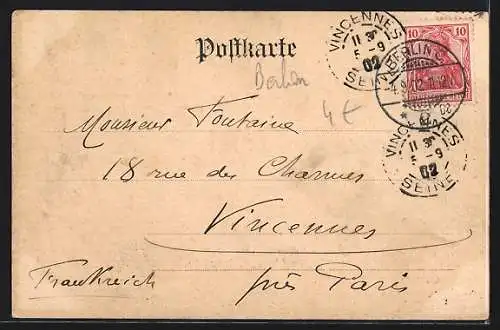 Postkarte
VINCENNES
11 30
5-9
02
SEINE
10 10
BERLIN C
Berlin
4 €
Monsieur Fontaine
VINCENNES
11 30
5-9
02
SEINE
18 rue des Charmes
Vincennes
Frankreich près Paris